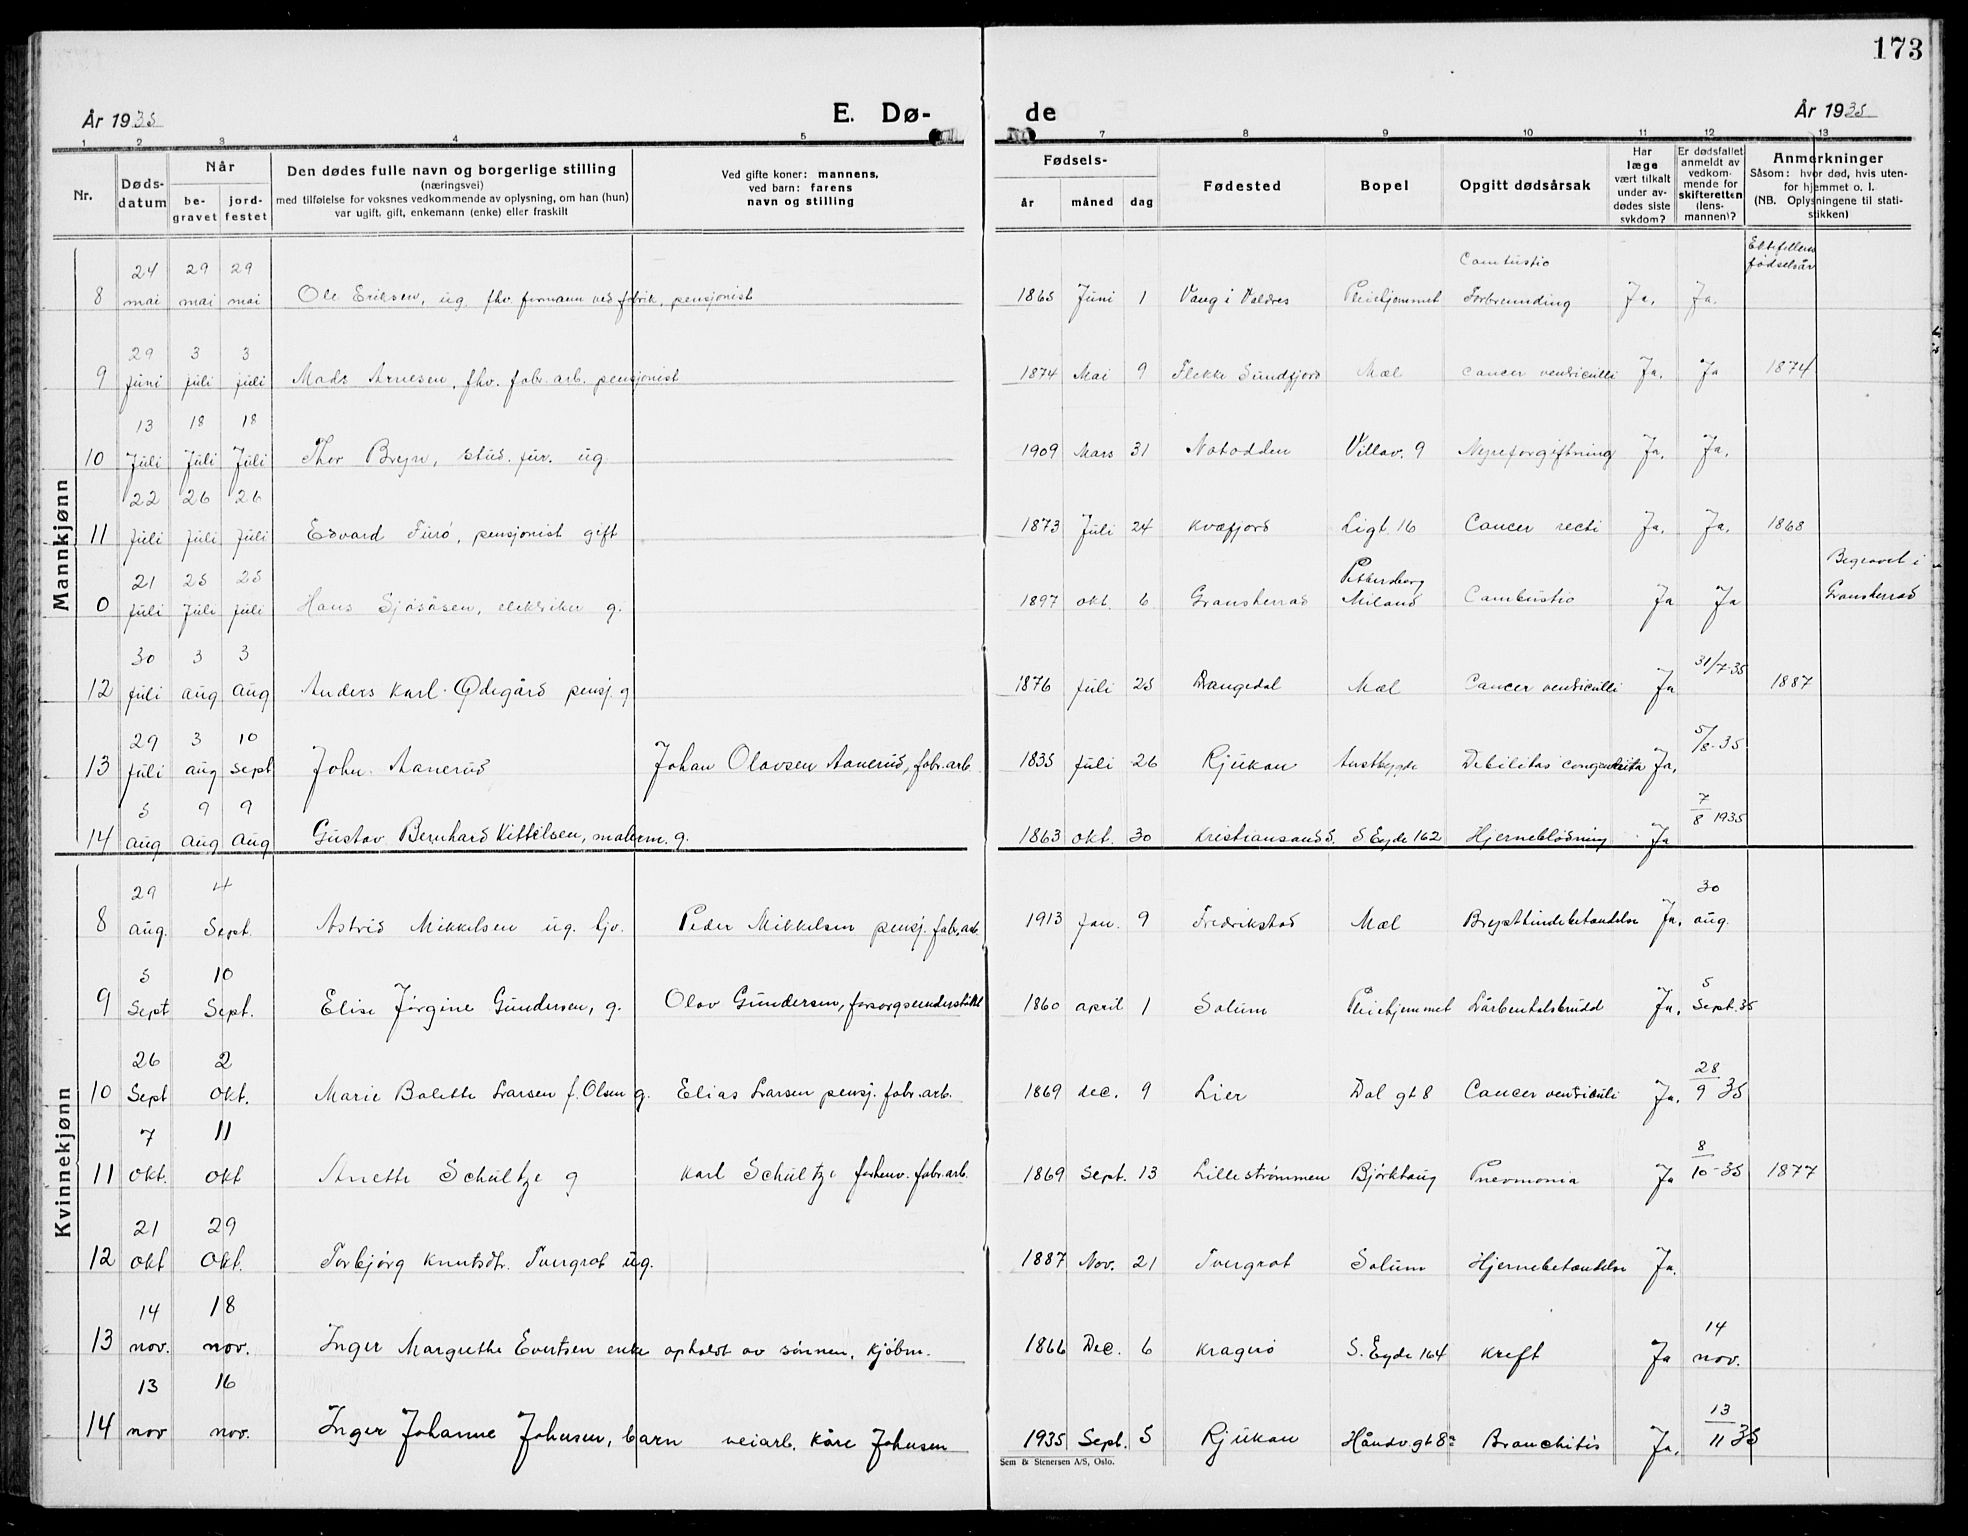 173
År 1935 E. Dø- de År 1935
1 2 3 4 5 7 8 9 10 11 12 13
Nr.
Døds-
datum
Når
be-
gravet
jord-
festet
Den dødes fulle navn og borgerlige stilling
(næringsvei)
med tilføielse for voksnes vedkommende av oplysning, om han (hun)
var ugift, gift, enkemann (enke) eller fraskilt
Ved gifte koner: mannens,
ved barn: farens
navn og stilling
Fødsels-
år måned dag
Fødested
Bopel
Opgitt dødsårsak
Har
læge
vært tilkalt
under av-
dødes siste
sykdom?
Er dødsfallet
anmeldt av
vedkom-
mende for
skifteretten
(lens-
mannen)?
Anmerkninger
Såsom: hvor død, hvis uten-
for hjemmet o. l.
(NB. Oplysningene til stati-
stikken)
Ektefellens
fødselsår
Mannkjønn
8 24 mai 29 mai 29 mai Ole Eriksen, ug. fhv. formann ved fabrik, pensjonist 1865 Juni 1 Vang i Valdres Pleiehjemmet Combustio Forbrending Ja. Ja.
9 29 juni 3 juli 3 juli Mads Arnesen, fhv. fabr. arb. pensjonist 1874 Mai 9 Flekke Sundfjord Mæl cancer ventriculli Ja. Ja 1874
10 13 Juli 18 Juli 18 Juli Thor Bryn, stud. jur. ug 1909 Mars 31 Notodden Villav. 9 Nyreforgiftning Ja. Ja.
11 22 juli 26 juli 26 juli Edvard Furø, pensjonist gift 1873 Juli 24 Kvæfjord Ligt. 16 Cancer recti Ja. Ja. 1868
0 21 juli 25 Juli 25 juli Hans Sjåsåsen, elektriker g. 1897 okt. 6 Gransherrad Miland Combustio Ja Ja Begravet i Gransherrad
12 30 juli 3 aug 3 aug Anders Karl Ødegård pensj. g 1876 juli 25 Drangedal Mæl Cancer ventriculli Ja 31/7-35 1887
13 29 juli 3 aug 10 sept John. Aanerud Johan Olavsen Aanerud, fabr. arb. 1835 juli 26 Rjukan Austbygde Debilitas congenita Ja, 5/8-35
14 5 aug 9 aug 9 aug Gustav Bernhard Kittilsen, malerm. g. 1863 okt. 30 Kristiansand S. S Eyde 162 Hjerneblødning Ja 7/8 1935
Kvinnekjønn
8 29 aug. 4 Sept. Astrid Mikkelsen ug. hjv. Peder Mikkelsen pensj. fabr. arb 1913 jan. 9 Fredrikstad Mæl Brysthindebetændelse Ja. 30 aug.
9 5 Sept 10 Sept. Elise Jørgine Gundersen, g. Olav Gundersen, forsorgsunderstøttet 1860 april 1 Solum Pleiehjemmet Lårbenhalsbrudd Ja. 5 Sept. 35
10 26 Sept 2 okt. Marie Bolette Larsen f. Olsen g. Elias Larsen pensj. fabr. arb. 1869 dec. 9 Lier Dal gt 8 Cancer ventriculi Ja. 28/9 35
11 7 okt. 11 okt Anette Schultze g Karl Schultze forhenv. fabr. arb. 1869 Sept. 13 Lillestrømmen Bjørkhaug Pnevmonia Ja 8/10-35 1877
12 21 okt 29 okt. Torbjørg Knutsdtr. Tvergrot ug. 1887 Nov. 21 Tvergrot Solum Hjernebetændelse Ja.
13 14 nov. 18 nov. Inger Margrethe Evertsen enke opholdt av sønnen, kjøbm. 1866 Dec. 6 Kragerø S. Eyde 164 Kreft Ja 14 nov.
14 13 nov 16 nov. Inger Johanne Johnsen, barn veiarb. Kåre Johnsen 1935 Sept. 5 Rjukan Håndv gt 8a Bronchitis Ja. 13/11 35
Sem & Stenersen A/S, Oslo.